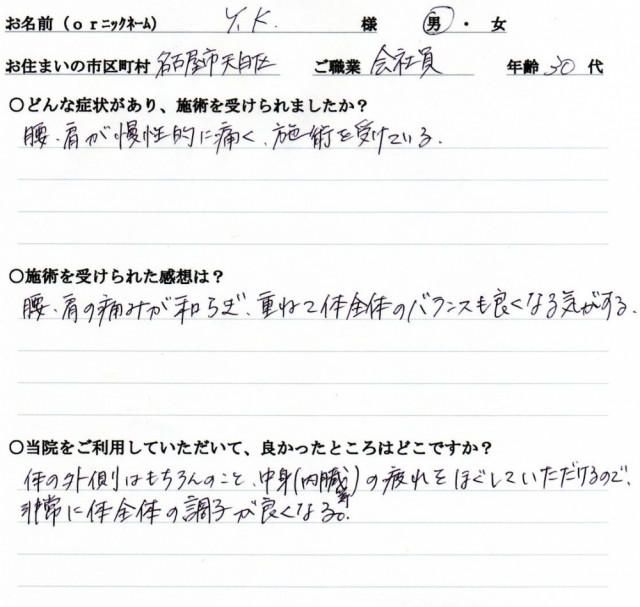 お名前(orニックネーム) Y.K. 様 男・女
お住まいの市区町村 名古屋市天白区 ご職業 会社員 年齢 30 代
○どんな症状があり、施術を受けられましたか？
腰、肩が慢性的に痛く、施術を受けている。
○施術を受けられた感想は？
腰、肩の痛みが和らぎ、重ねて体全体のバランスも良くなる気がする。
○当院をご利用していただいて、良かったところはどこですか？
体の外側はもちろんのこと、中身(内臓等)の疲れをほぐしていただけるので、
非常に体全体の調子が良くなる。